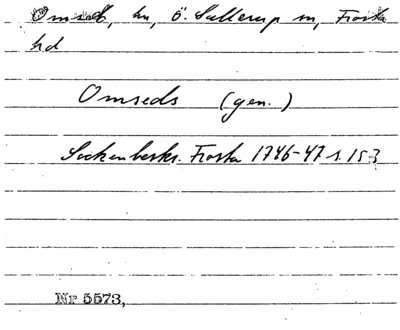 Omsed, hn, Ö. Sallerup sn, Frosta
hd
Omseds (gen.)
Sockenbeskr. Frosta 1746-47 s. 153
Nr 5573,